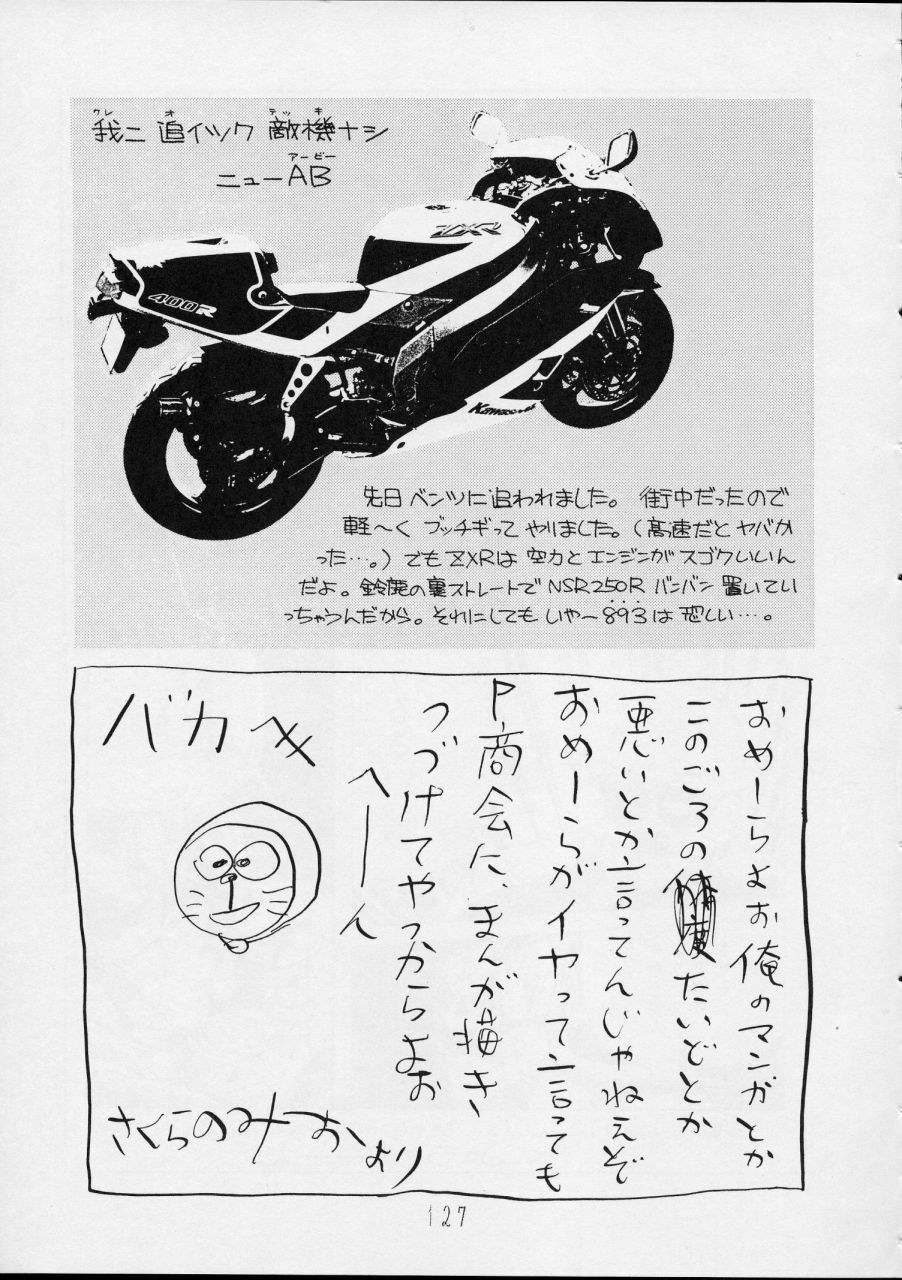 我ニ 追イツク 敵機ナシ
ワレ オ テッキ
ニューAB
アービー
ZXR
400R
Kawasaki
先日 ベンツに追われました。 街中だったので
軽〜く ブッチギって やりました。(高速だと ヤバか
った…。) でも ZXRは 空力と エンジンが スゴクいいん
だよ。鈴鹿の裏ストレートで NSR250R バンバン 置いてい
っちゃうんだから。それにしても いやー 893は 恐しい…。
おめーらよお俺のマンガとか
このごろのたいどとか
悪いとか言ってんじゃねえぞ
おめーらがイヤって言っても
P.商会に、まんが描き
つづけてやっからよお
へーん
バカめ
さくらのみーおより
127